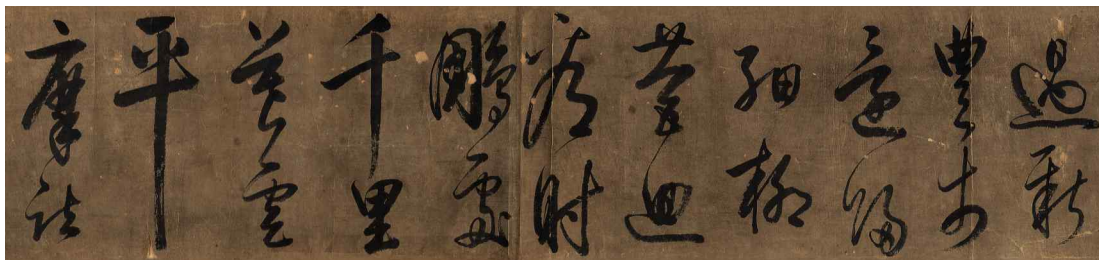 過新
豐市
還歸
細柳
營迴
看射
鵰處
千里
暮雲
平
摩詰